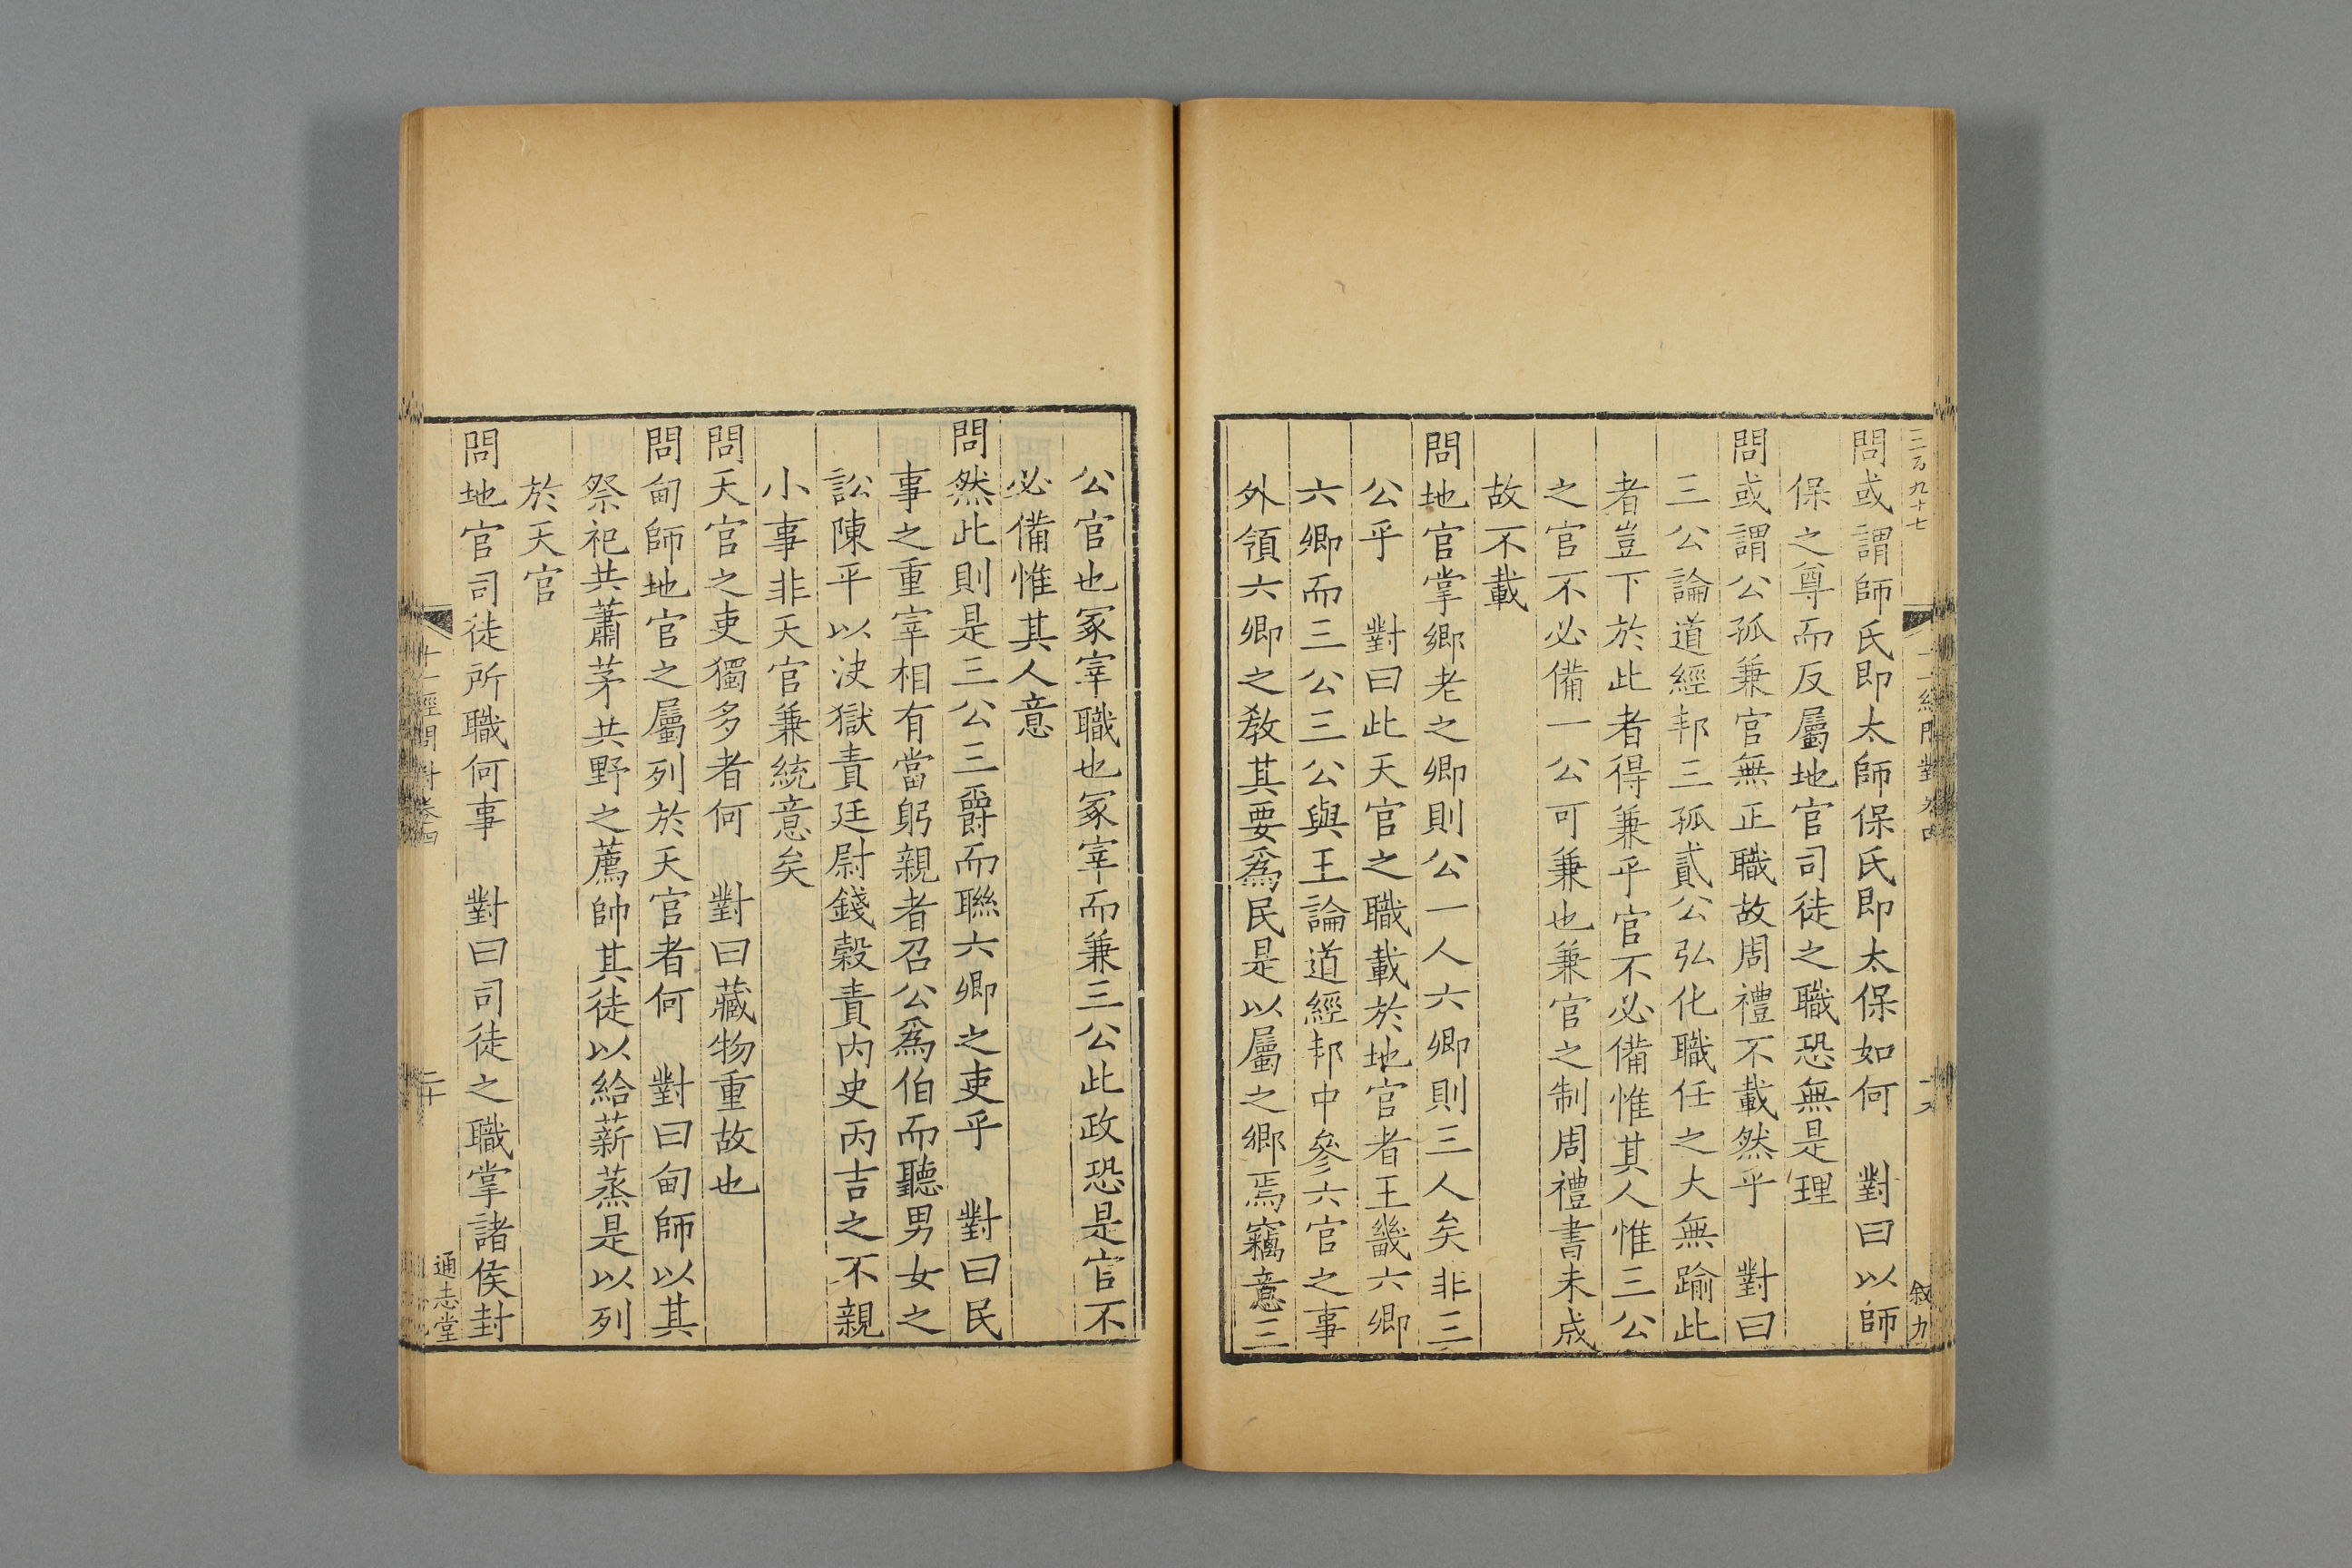 三百九十七
十一經問對卷四
敘九
問或謂師氏即太師保氏即太保如何　對曰以師
保之尊而反屬地官司徒之職恐無是理
問或謂公孤兼官無正職故周禮不載然乎　對曰
三公論道經邦三孤貳公弘化職任之大無踰此
者豈下於此者得兼乎官不必備惟其人惟三公
之官不必備一公可兼也兼官之制周禮書未成
故不載
問地官掌鄉老之卿則公一人六卿則三人矣非三
公乎　對曰此天官之職載於地官者王畿六鄉
六卿而三公三公與王論道經邦中參六官之事
外領六鄉之教其要爲民是以屬之鄉焉竊意三
公官也冢宰職也冢宰而兼三公此政恐是官不
必備惟其人意
問然此則是三公三爵而聯六卿之吏乎　對曰民
事之重宰相有當躬親者召公爲伯而聽男女之
訟陳平以決獄責廷尉錢穀責內史丙吉之不親
小事非天官兼統意矣
問天官之吏獨多者何　對曰藏物重故也
問甸師地官之屬列於天官者何　對曰甸師以其
祭祀共蕭茅共野之薦帥其徒以給薪蒸是以列
於天官
問地官司徒所職何事　對曰司徒之職掌諸侯封
十一經問對卷四
二十
通志堂